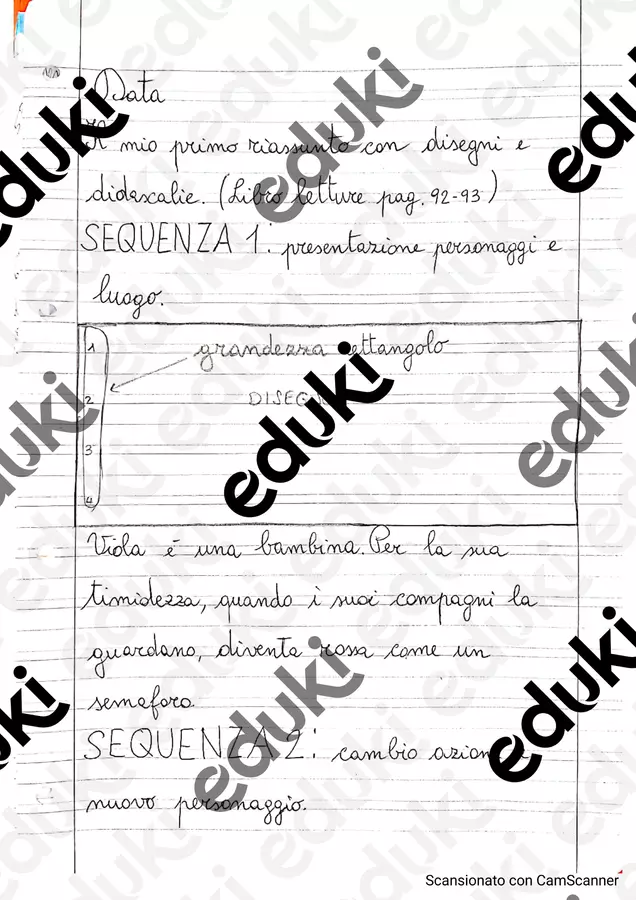 Data
Il mio primo riassunto con disegni e
didascalie. (Libro letture pag. 92-93)
SEQUENZA 1: presentazione personaggi e
luogo.
1
grandezza rettangolo
2
DISEGNO
3
4
Viola è una bambina. Per la sua
timidezza, quando i suoi compagni la
guardano, diventa rossa come un
semaforo.
SEQUENZA 2: cambio azione e
nuovo personaggio.
eduki
Scansionato con CamScanner